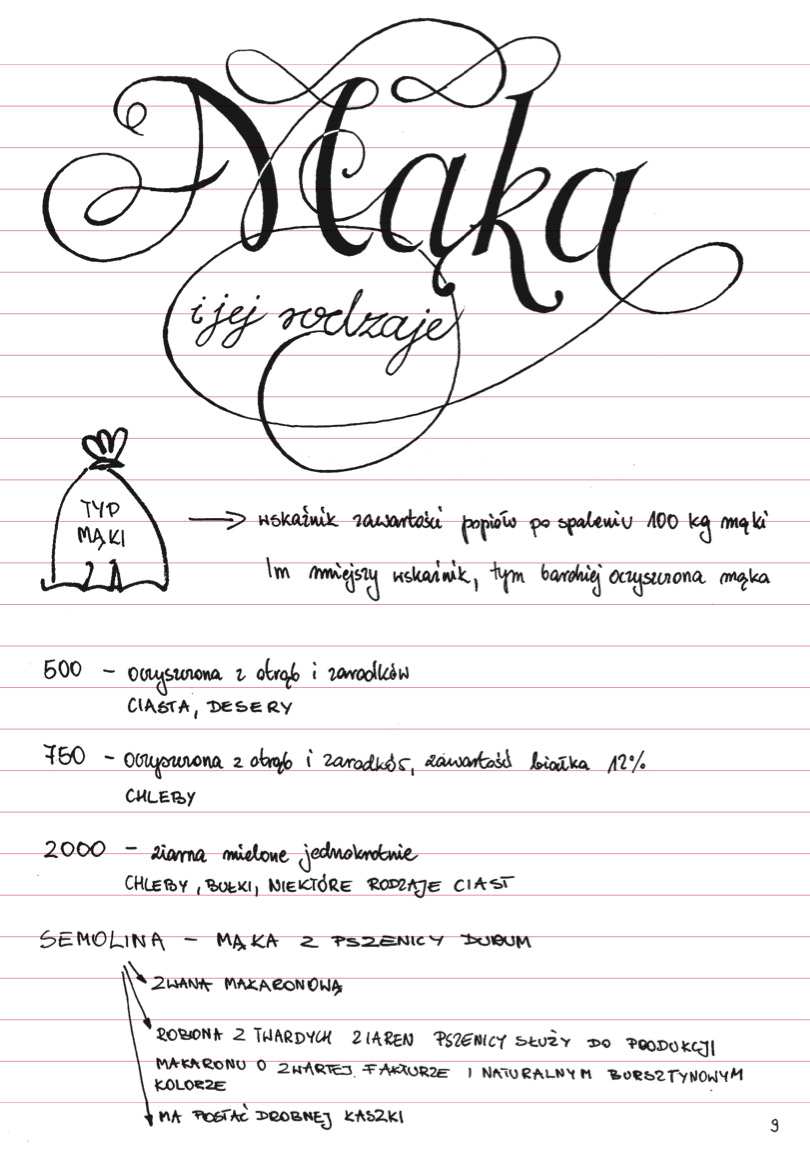 Mąka
i jej rodzaje
TYP
MĄKI
wskaźnik zawartości popiołu po spaleniu 100 kg mąki
Im mniejszy wskaźnik, tym bardziej oczyszczona mąka
500 – oczyszczona z otrąb i zarodków
CIASTA, DESERY
750 – oczyszczona z otrąb i zarodków, zawartość białka 12%
CHLEBY
2000 – ziarna mielone jednokrotnie
CHLEBY, BUŁKI, NIEKTÓRE RODZAJE CIAST
SEMOLINA – MĄKA Z PSZENICY DURUM
ZWANA MAKARONOWĄ
ROBIONA Z TWARDYCH ZIAREN PSZENICY SŁUŻY DO PRODUKCJI
MAKARONU O ZWARTEJ FAKTURZE I NATURALNYM BURSZTYNOWYM
KOLORZE
MA POSTAĆ DROBNEJ KASZKI
9